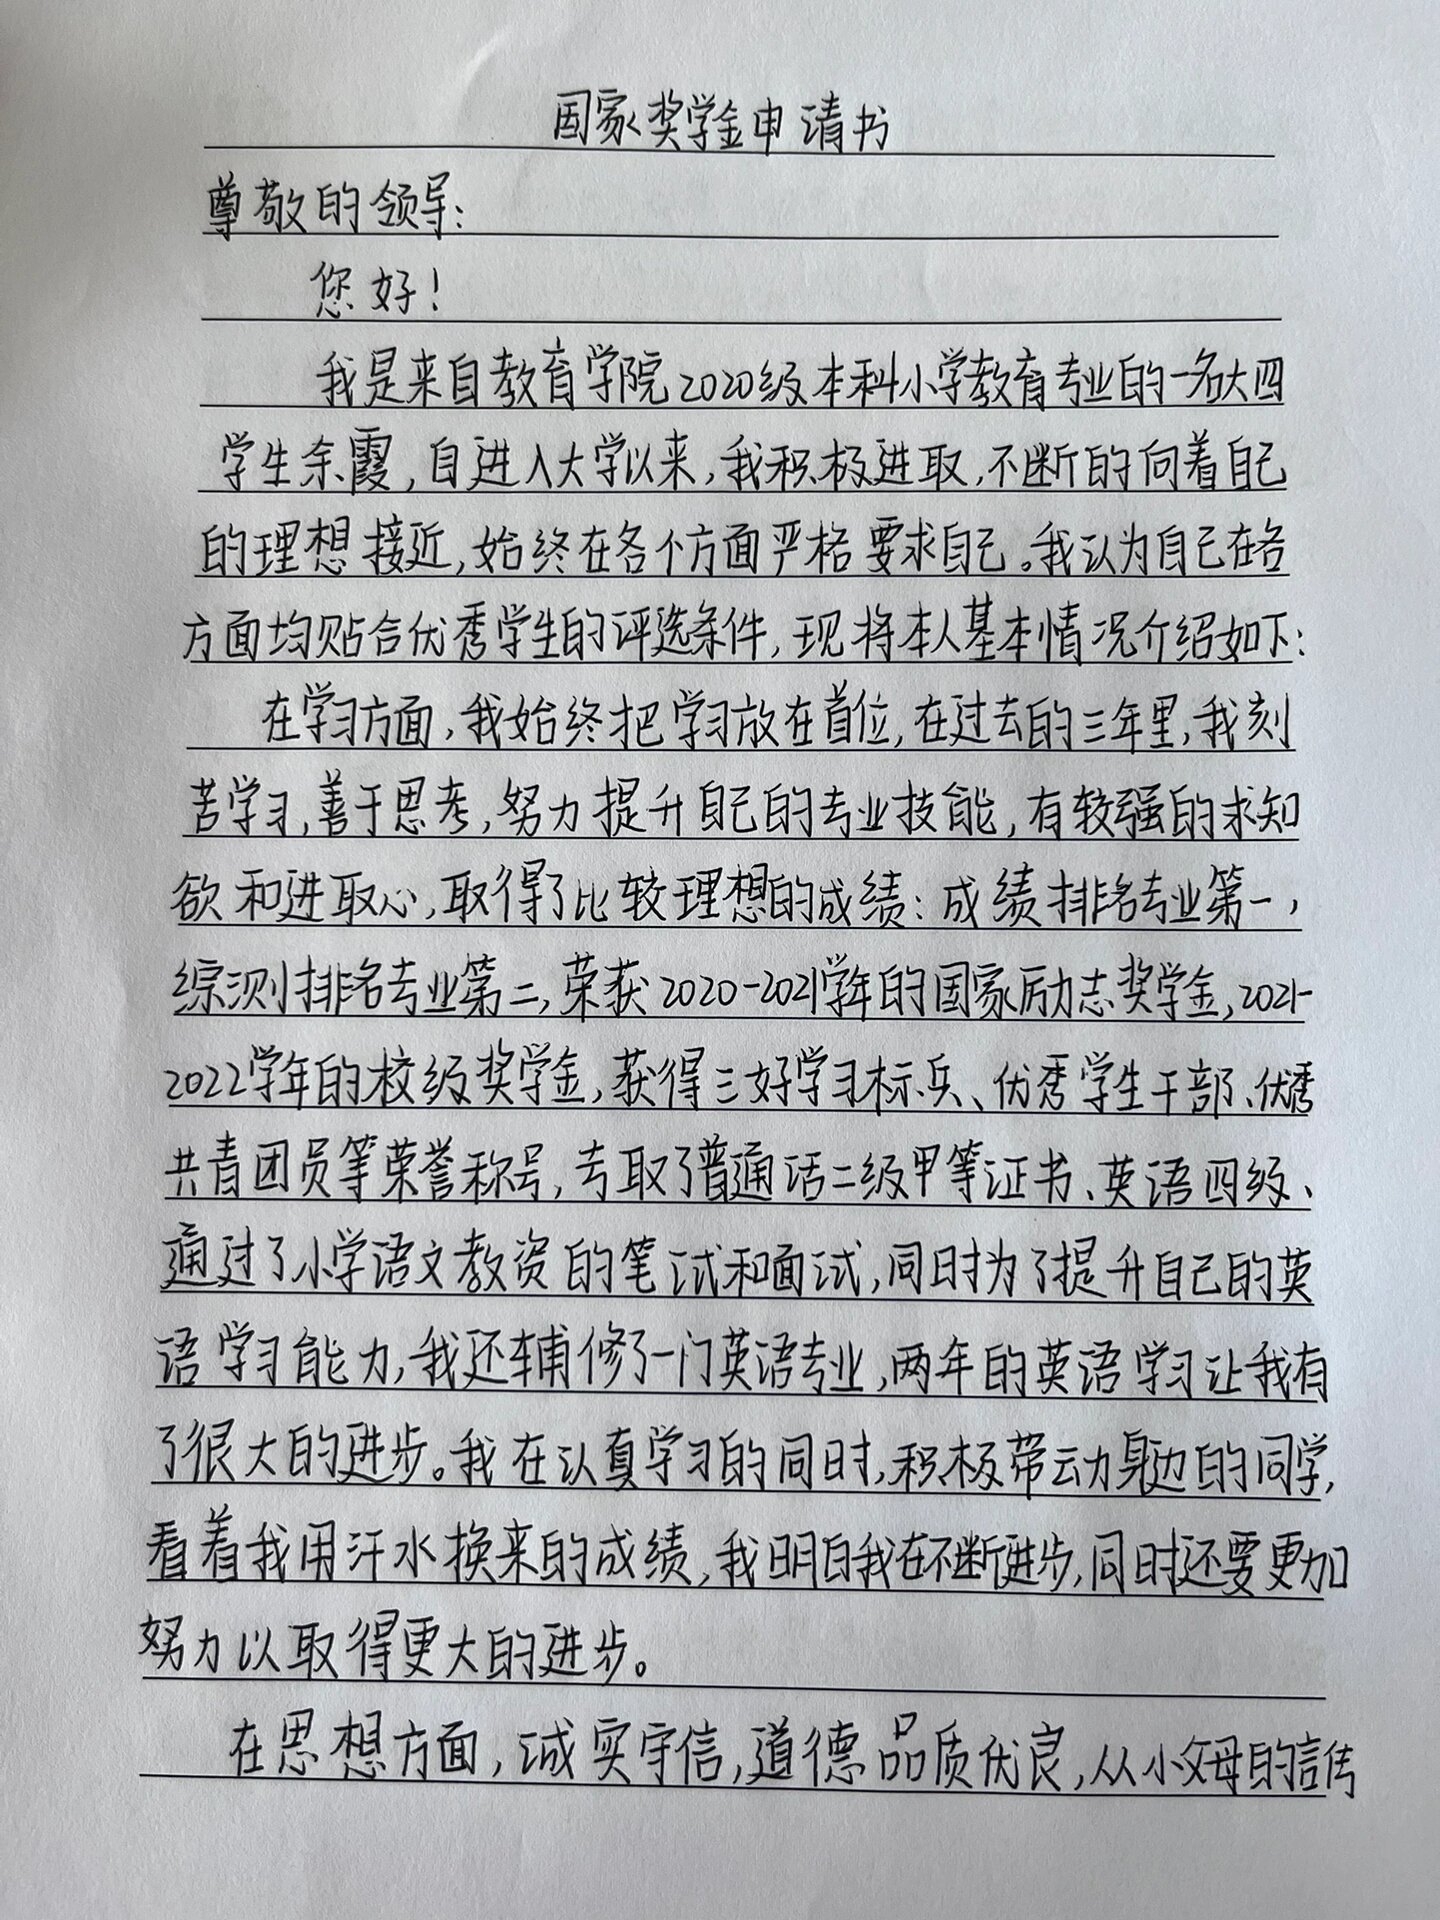 国家奖学金申请书
尊敬的领导：
您好！
我是来自教育学院2020级本科小学教育专业的一名大四
学生余霞，自进入大学以来，我积极进取，不断的向着自己
的理想接近，始终在各个方面严格要求自己。我认为自己在各
方面均贴合优秀学生的评选条件，现将本人基本情况介绍如下：
在学习方面，我始终把学习放在首位，在过去的三年里，我刻
苦学习，善于思考，努力提升自己的专业技能，有较强的求知
欲和进取心，取得了比较理想的成绩：成绩排名专业第一，
综测排名专业第二，荣获2020-2021学年的国家励志奖学金，2021-
2022学年的校级奖学金，获得三好学习标兵、优秀学生干部、优秀
共青团员等荣誉称号，考取了普通话二级甲等证书、英语四级、
通过了小学语文教资的笔试和面试，同时为了提升自己的英
语学习能力，我还辅修了一门英语专业，两年的英语学习让我有
了很大的进步。我在认真学习的同时，积极带动身边的同学，
看着我用汗水换来的成绩，我明白我在不断进步，同时还要更加
努力以取得更大的进步。
在思想方面，诚实守信，道德品质优良，从小父母的言传